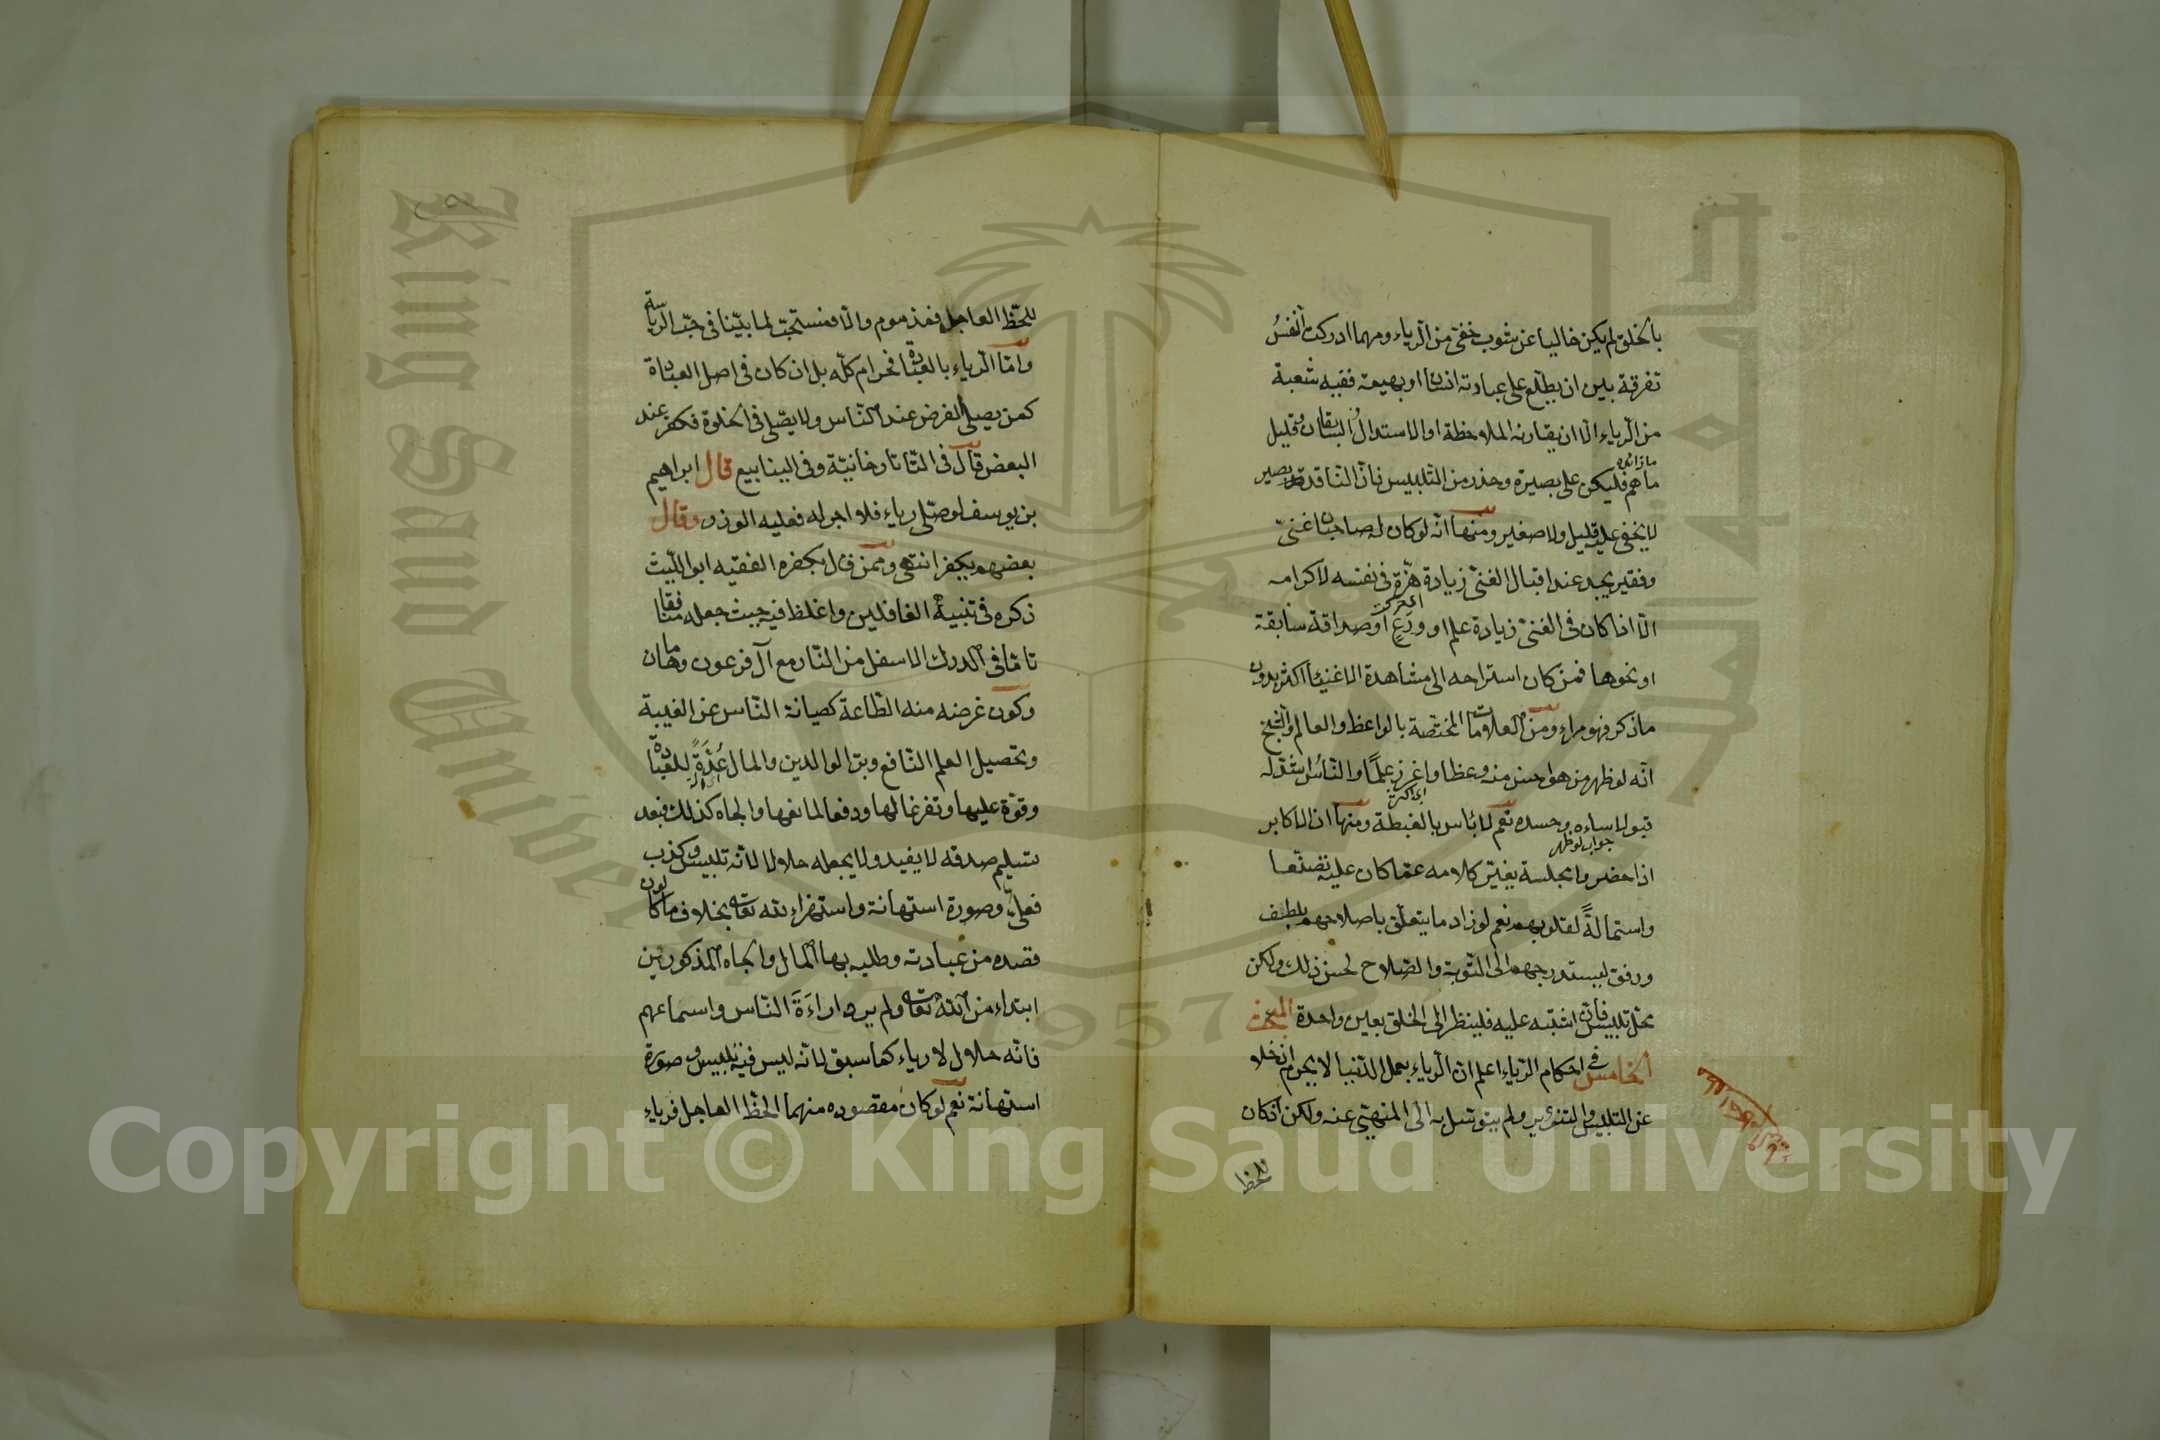 بالخلق لم يكن خاليا عن شوب خفي من الرياء ومهما ادركت النفس
تفرقة بين ان يطلع على عبادته انسان او بهيمة ففيه شعبة
من الرياء الا ان يقارنه الملاحظة او الاستدلال السابقان وقليل
ما زائدة
ما هم فليكن على بصيرة وحذر من التلبيس فان الناقد بصير
لا يخفى عليه قليل ولا صغير ومنها انه لو كان له صاحبان غني
وفقير يجد عند اقبال الغني زيادة هزة في نفسه لاكرامه
الا اذا كان في الغني زيادة علم او ورع او صداقة سابقة
او نحوها فمن كان استراحه الى مشاهدة الاغنياء اكثر بدون
ما ذكر فهو مراء ومن العلامات المختصة بالواعظ والعالم والشيخ
انه لو ظهر من هو احسن منه وعظا واغزر علما والناس اشد له
قبولا ساءه وحسده نعم لا باس بالغبطة ومنها ان الاكابر
جواب لو ظهر
اذا حضروا مجلسه يغير كلامه عما كان عليه تصنعا
واستمالة لقلوبهم نعم لو زاد ما يتعلق باصلاحهم بلطف
ورفق ليستدرجهم الى التوبة والصلاح لحسن ذلك ولكن
محل تلبيس فان اشتبه عليه فلينظر الى الخلق بعين واحدة المبحث
الخامس في احكام الرياء اعلم ان الرياء بعمل الدنيا لا يحرم ان خلا
عن التلبيس والتزوير ولم يتوسل به الى المنهي عنه ولكن ان كان
للحظ
للحظ العاجل فمذموم والا فمستحب لما بينا في حب الرياسة
واما الرياء بالعبادة فحرام كله بل ان كان في اصل العبادة
كمن يصلي الفرض عند الناس ولا يصلي في الخلوة فكفر عند
البعض قال في التاتارخانية وفي الينابيع قال ابراهيم
بن يوسف لو صلى رياء فلا اجر له فعليه الوزر وقال
بعضهم يكفر انتهى وممن قال بكفره الفقيه ابو الليث
ذكره في تنبيه الغافلين واغلظ فيه حيث جعله منافقا
تاما في الدرك الاسفل من النار مع آل فرعون وهامان
وكون غرضه منه الطاعة كصيانة الناس عن الغيبة
وتحصيل العلم النافع وبر الوالدين والمال عدة للعبادة
وقوة عليها وتفرغا لها ودفعا لمانعها والجاه كذلك فبعد
تسليم صدقه لا يفيد ولا يجعله حلالا لانه تلبيس وكذب
فعلي وصورة استهانة واستهزاء لله تعالى بخلاف ما كان
قصده من عبادته وطلبه بها المال والجاه المذكورين
ابتداء من الله تعالى ولم يرد اراءة الناس واسماعهم
فانه حلال لا رياء كما سبق لانه ليس فيه تلبيس وصورة
استهانة نعم لو كان مقصوده منهما الحظ العاجل فرياء
King Saud University
1957
Copyright © King Saud University